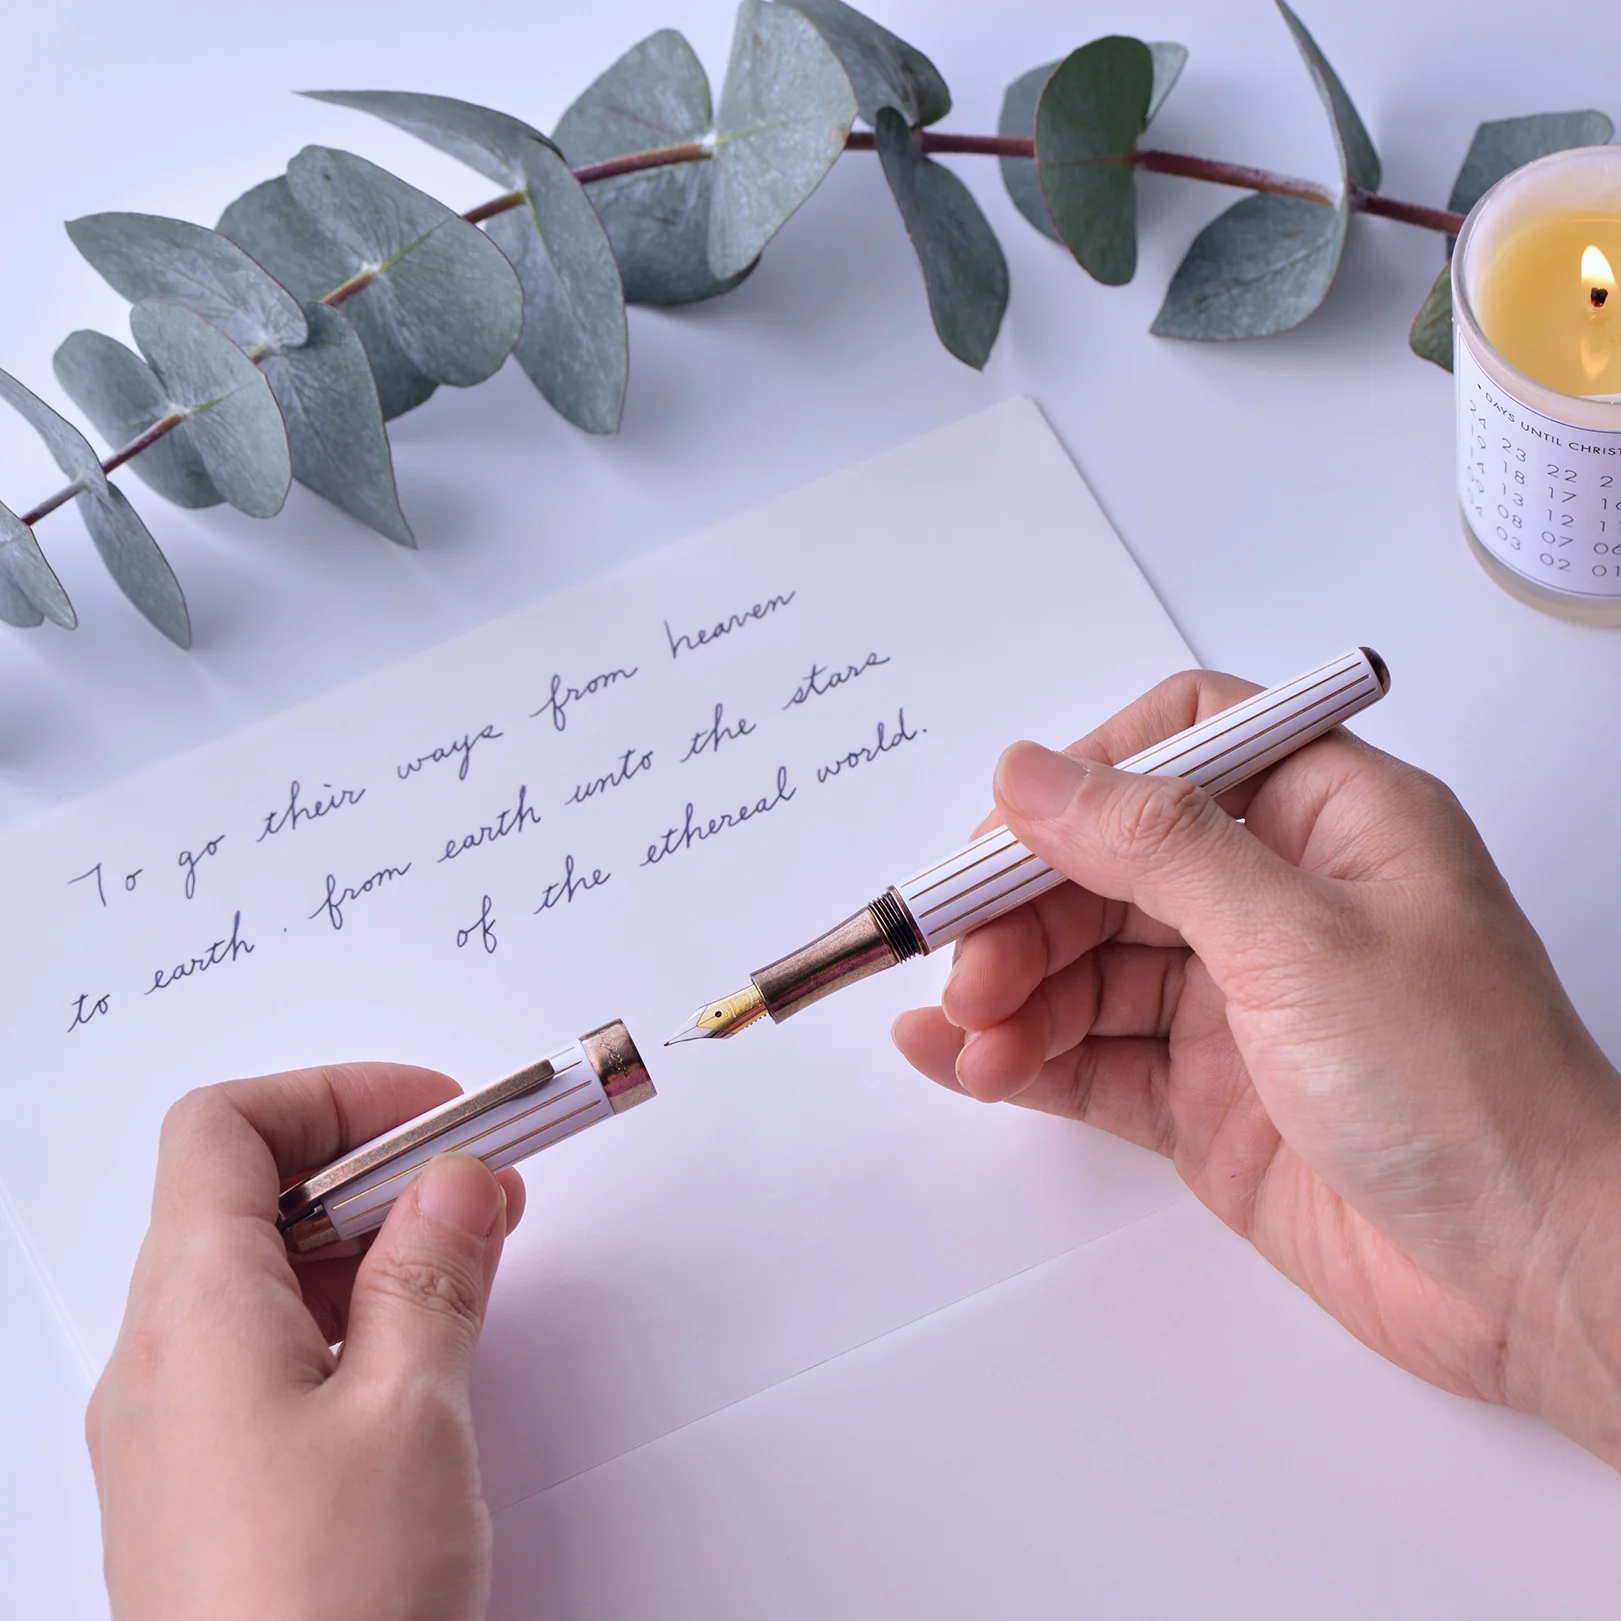 To go their ways from heaven
to earth. from earth unto the stars
of the ethereal world.
• DAYS UNTIL CHRIST
24 23 22 2
19 18 17 16
14 13 12 1
09 08 07 06
04 03 02 01